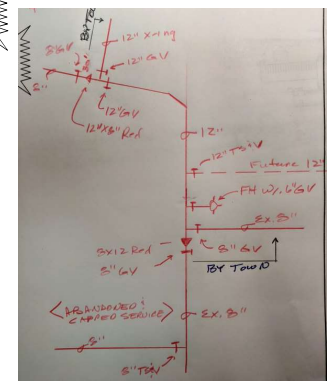 BY TO
12" X-ing
8" GV
12" GV
8"
12" GV
12"X8" Red
12"
12" TS+V
Future 12"
FH W/ 6" GV
Ex. 8"
8X12 Red
8" GV
8" GV
BY TOWN
<ABANDONED & CAPPED SERVICE>
Ex. 8"
8"